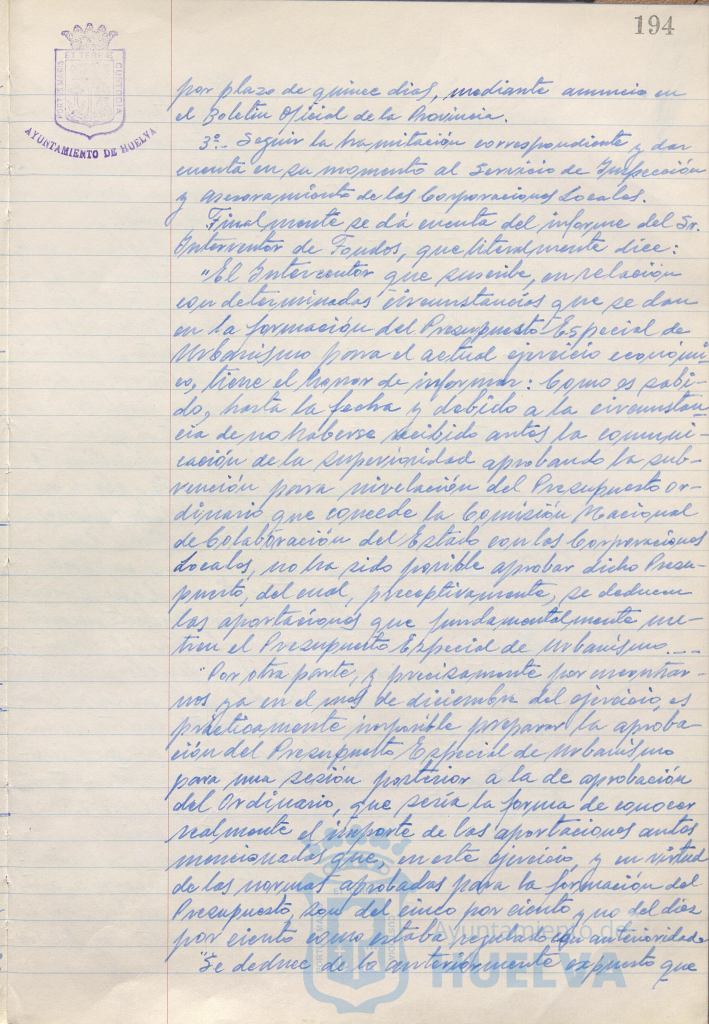 194
PORTUS MARIS ET TERRAE CUSTODIA
AYUNTAMIENTO DE HUELVA
por plazo de quince dias, mediante anuncio en
el Boletin Oficial de la Provincia.
3º.- Seguir la tramitación correspondiente y dar
cuenta en su momento al Servicio de Inspección
y asesoramiento de las Corporaciones Locales.
Finalmente se dá cuenta del informe del Sr.
Interventor de Fondos, que literalmente dice:
"El Interventor que suscribe, en relación
con determinadas circunstancias que se dan
en la formación del Presupuesto Especial de
Urbanismo para el actual ejercicio económi-
co, tiene el honor de informar: Como es sabi-
do, hasta la fecha y debido a la circunstan
cia de no haberse recibido antes la comuni-
cación de la superioridad aprobando la sub-
vención para nivelación del Presupuesto or-
dinario que concede la Comisión Nacional
de Colaboración del Estado con las Corporaciones
Locales, no ha sido posible aprobar dicho Presu-
puesto, del cual, preceptivamente, se deducen
las aportaciones que fundamentalmente nu-
tren el Presupuesto Especial de Urbanismo.---
"Por otra parte, y precisamente por encontrar-
nos ya en el mes de diciembre del ejercicio, es
prácticamente imposible preparar la aproba-
ción del Presupuesto Especial de Urbanismo
para una sesión posterior a la de aprobación
del Ordinario, que sería la forma de conocer
realmente el importe de las aportaciones antes
mencionadas que, en este ejercicio, y en virtud
de las normas aprobadas para la formación del
Presupuesto, son del cinco por ciento y no del diez
por ciento como estaba regulado con anterioridad.
"Se deduce de lo anteriormente expuesto que
Ayuntamiento de
HUELVA